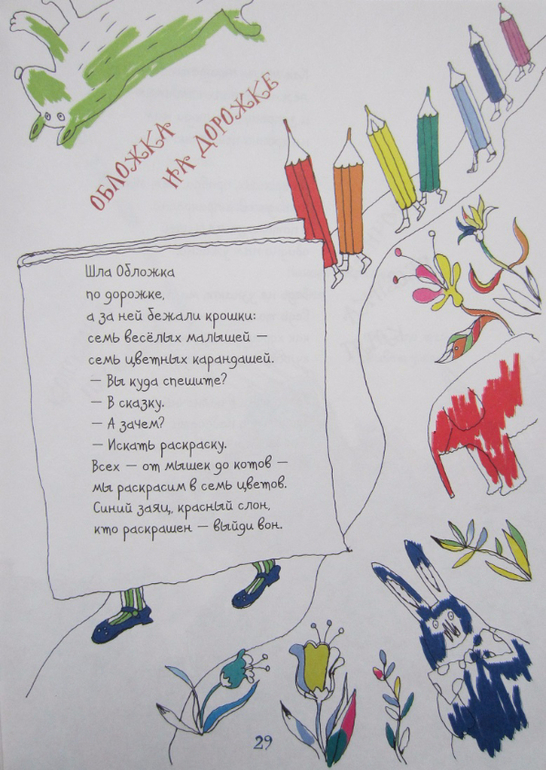 ОБЛОЖКА
НА ДОРОЖКЕ
Шла Обложка
по дорожке,
а за ней бежали крошки:
семь весёлых малышей —
семь цветных карандашей.
— Вы куда спешите?
— В сказку.
— А зачем?
— Искать раскраску.
Всех — от мышек до котов —
мы раскрасим в семь цветов.
Синий заяц, красный слон,
кто раскрашен — выйди вон.
29